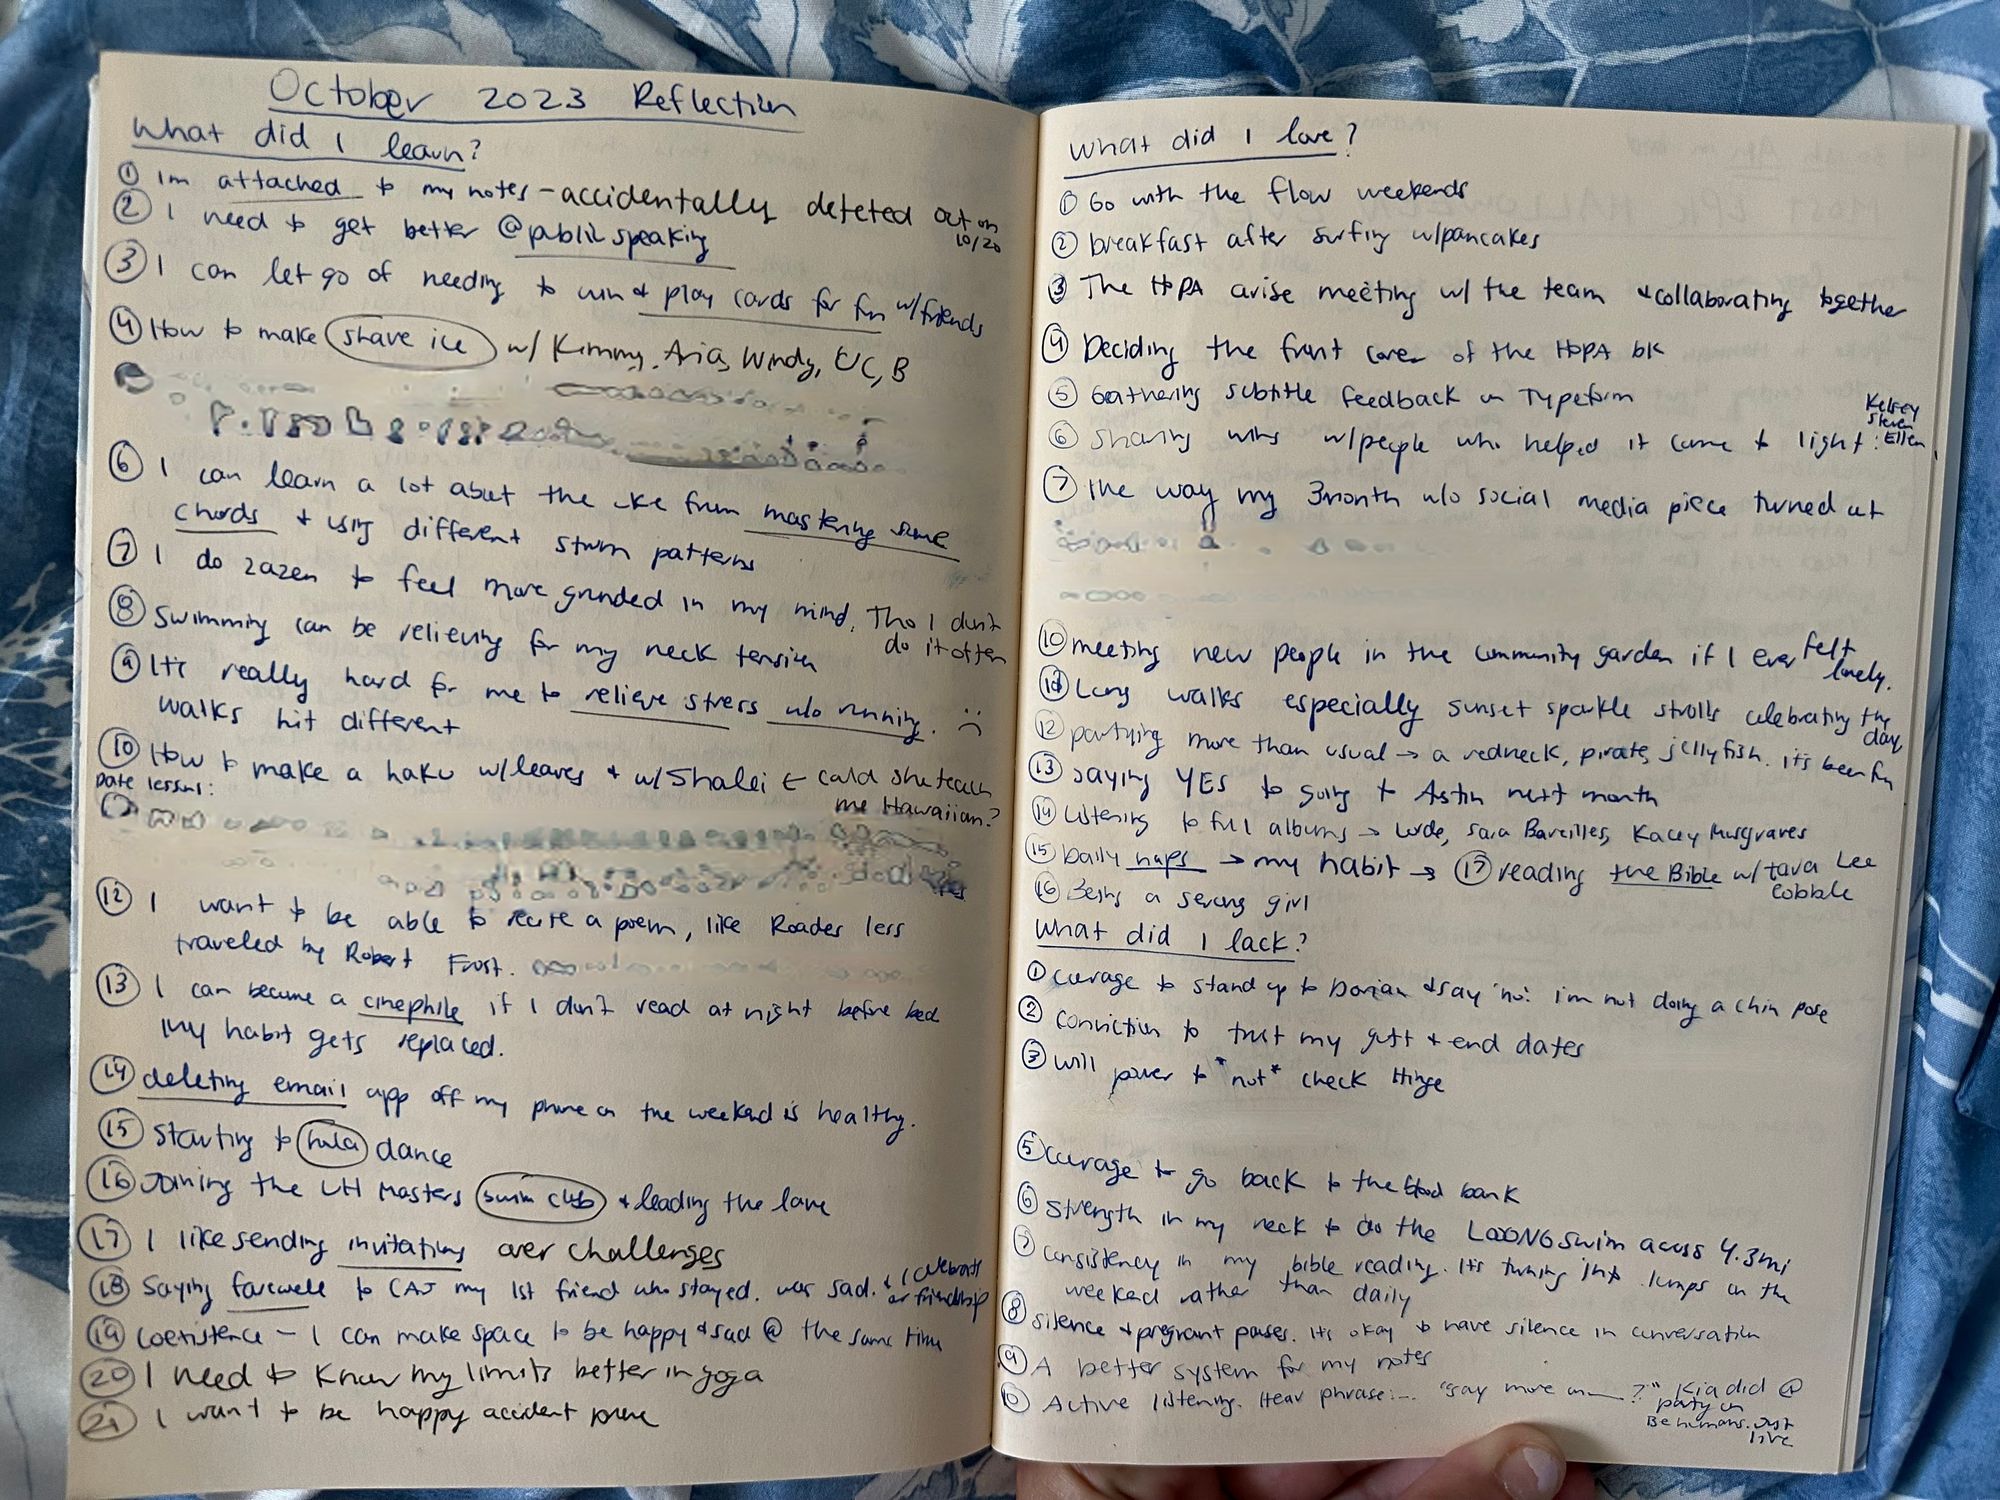 October 2023 Reflection
What did I learn?
① Im attached to my notes - accidentally deleted out on
10/20
② I need to get better @ public speaking
③ I can let go of needing to win & play cards for fun w/friends
④ How to make shave ice w/ Kimmy, Aria, Windy, UC, B
⑥ I can learn a lot about the uke from mastering some
chords & using different strum patterns
⑦ I do zazen to feel more grounded in my mind. Tho I don't
do it often
⑧ Swimming can be relieving for my neck tension
⑨ It's really hard for me to relieve stress w/o running. :(
walks hit different
⑩ How to make a haku w/leaves & w/Shalei ← could she teach
me Hawaiian?
Date lessons:
⑫ I want to be able to recite a poem, like Roades less
traveled by Robert Frost.
⑬ I can become a cinephile if I don't read at night before bed
my habit gets replaced.
⑭ deleting email app off my phone on the weekend is healthy.
⑮ Starting to hula dance
⑯ Joining the UH Masters swim club & leading the lane
⑰ I like sending invitations over challenges
⑱ Saying farewell to CAJ my 1st friend who stayed. was sad. & I celebrate
our friendship
⑲ Coexistence - I can make space to be happy & sad @ the same time
⑳ I need to know my limits better in yoga
㉑ I want to be happy accident prone
What did I love?
① Go with the flow weekends
② breakfast after surfing w/pancakes
③ The HOPA arise meeting w/ the team & collaborating together
④ Deciding the front cover of the HOPA bk
⑤ Gathering subtitle feedback on Typeform
⑥ Sharing wins w/people who helped it come to light: Kelsey
Steven
Ellen
⑦ The way my 3month w/o social media piece turned out
⑩ meeting new people in the community garden if I ever felt
lonely.
⑪ Long walks especially sunset sparkle strolls celebrating the
day
⑫ partying more than usual → a redneck, pirate, jellyfish. it's been fun
⑬ saying YES to going to Austin next month
⑭ Listening to full albums → Lorde, Sara Bareilles, Kacey Musgraves
⑮ Daily naps → my habit → ⑰ reading the Bible w/ Tara Lee
Cobble
⑯ Being a serong girl
What did I lack?
① courage to stand up to Dorian & say 'no'. i'm not doing a chin pose
② conviction to trust my gutt & end dates
③ will power to *not* check Hinge
⑤ courage to go back to the blood bank
⑥ Strength in my neck to do the LOOONG swim across 4.3mi
⑦ consistency in my bible reading. It's turning into lumps on the
weekend rather than daily
⑧ silence & pregnant pauses. It's okay to have silence in conversation
⑨ A better system for my notes
⑩ Active listening. Hear phrase:... "say more on ___?" Kia did @
party on
Be humans. Just
live